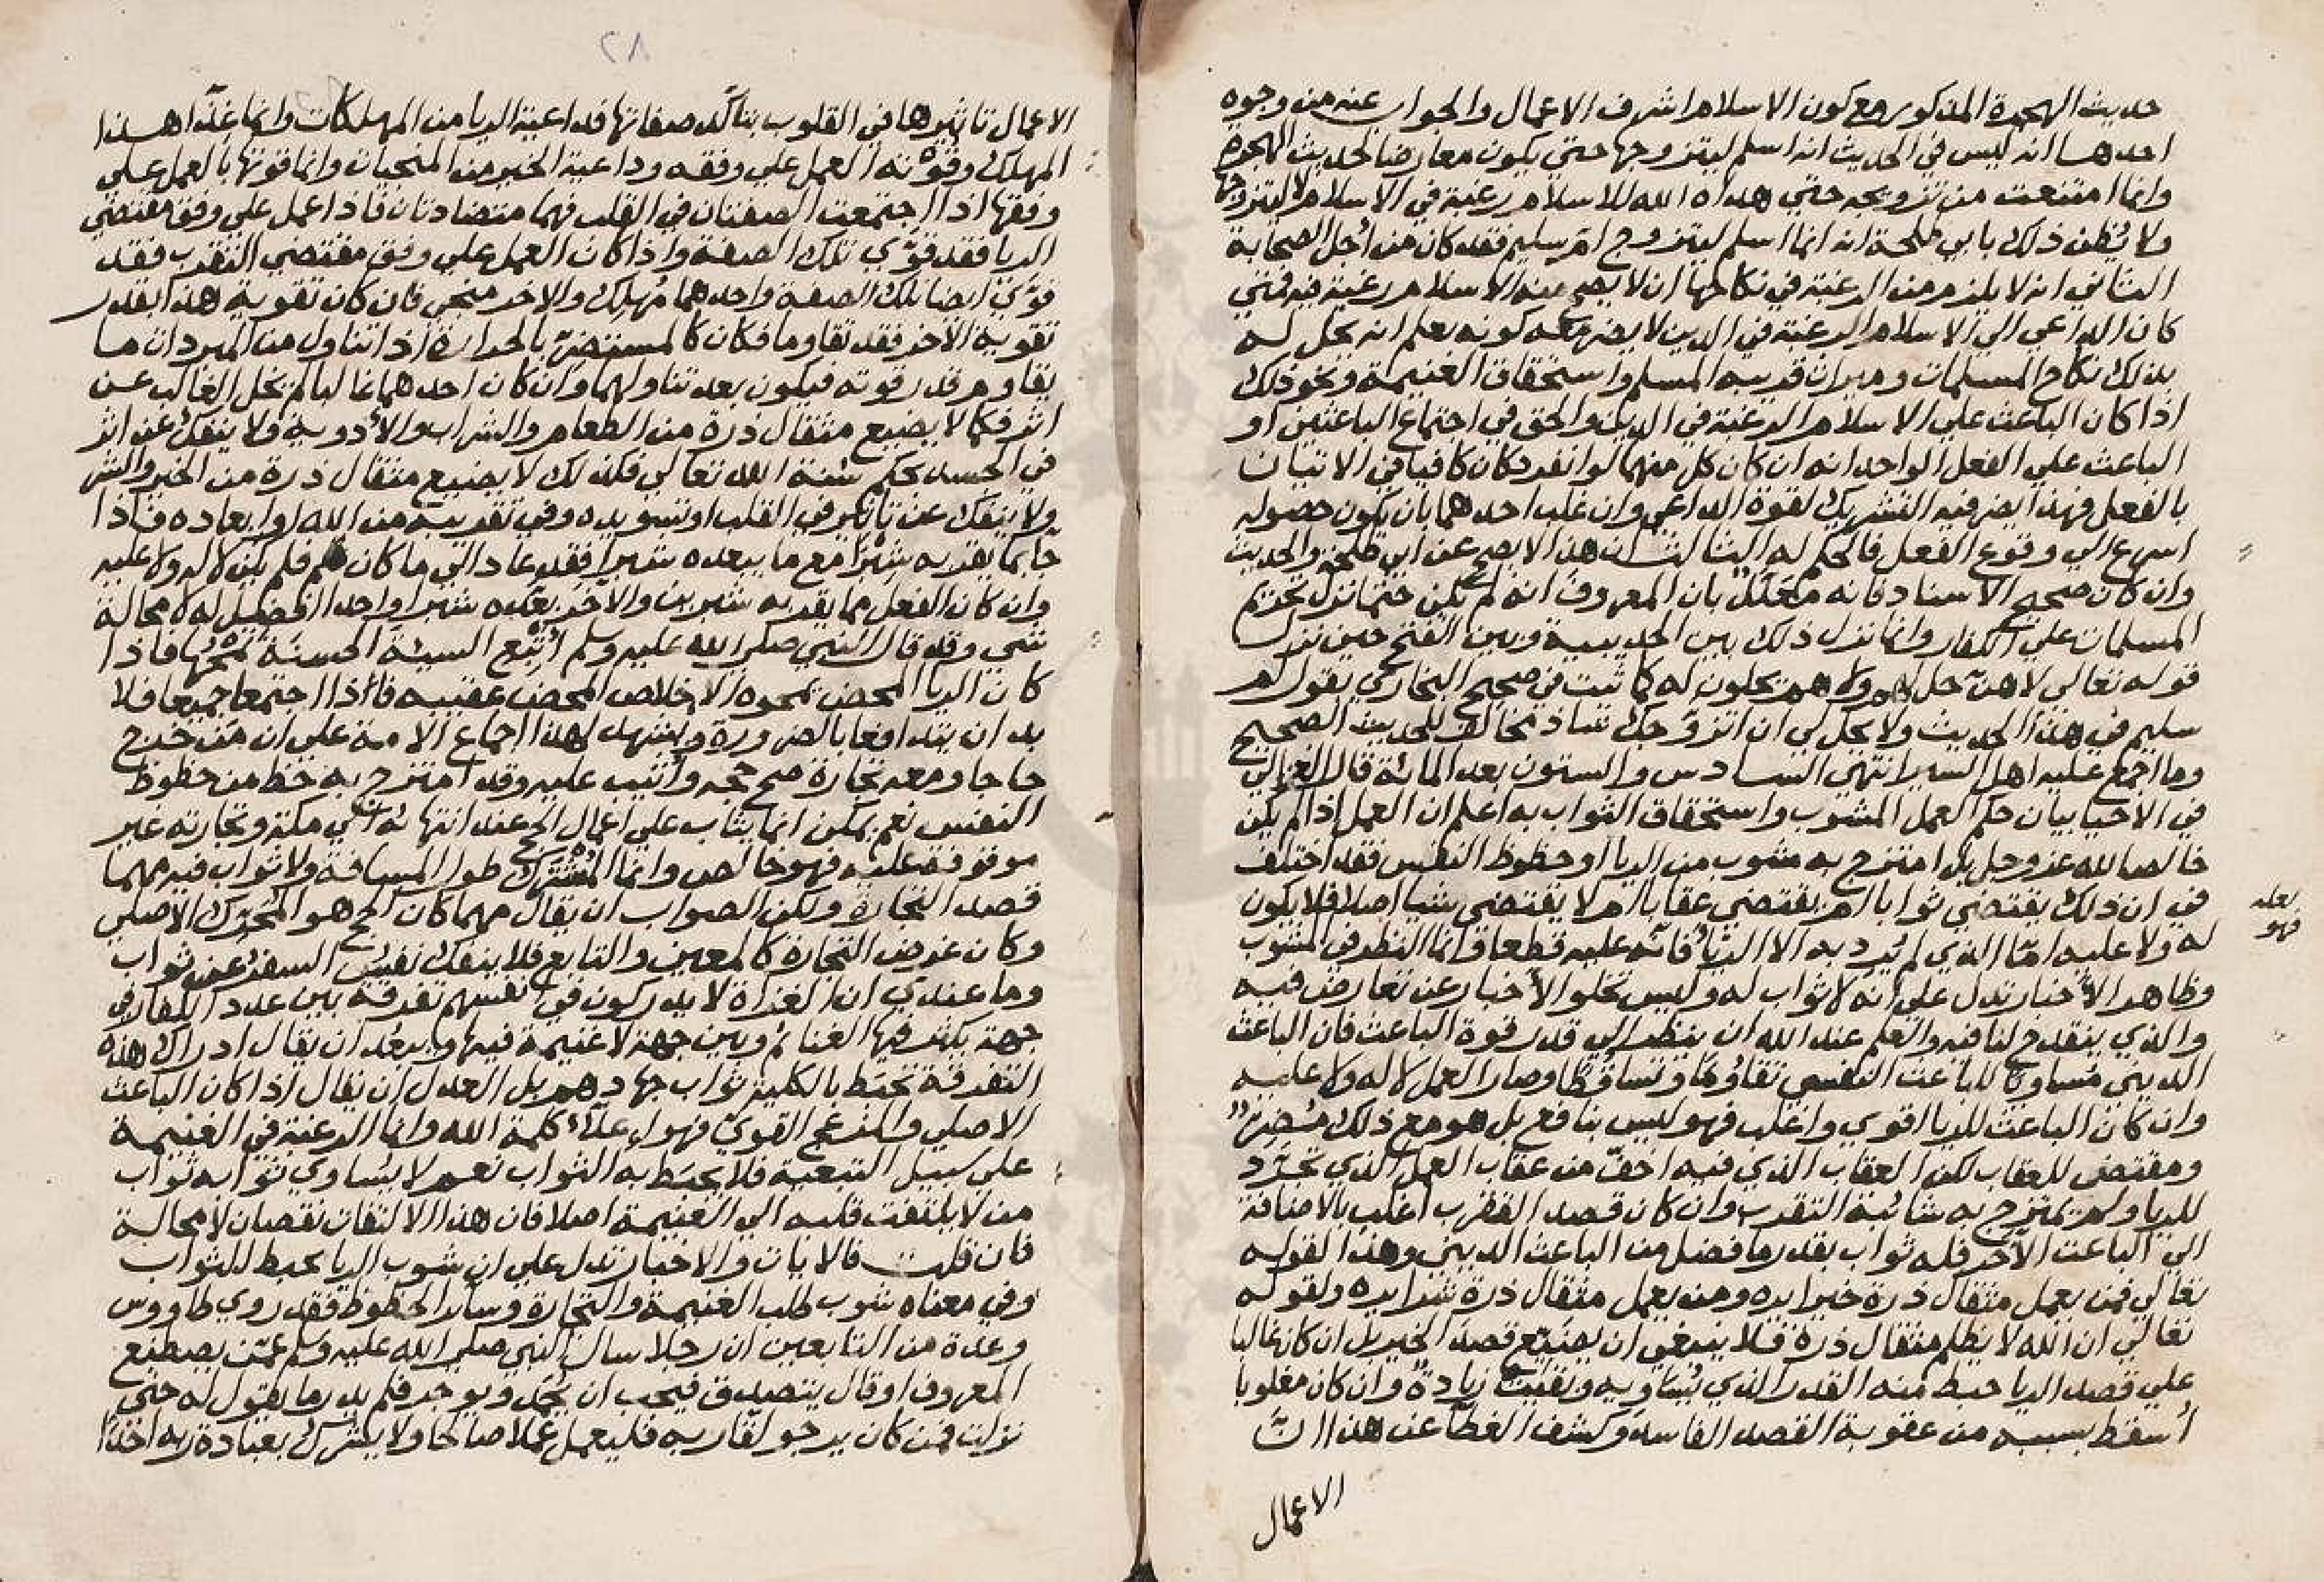 حديث الهجرة المذكور مع كون الاسلام اشرف الاعمال والجواب عنه من وجوه
احدها انه ليس في الحديث انه اسلم ليتزوجها حتي يكون معارضا لحديث الهجرة
وانما امتنعت من تزويجه حتي هداه الله للاسلام رغبة في الاسلام لا ليتزوجها
ولا يُظن ذلك بابي طلحة انه انما اسلم ليتزوج ام سليم فقد كان من اجل الصحابة
الثاني انه لا يلزم من الرغبة في نكاحها ان لا يصح منه الاسلام رغبة فيه فمتي
كان الداعي الي الاسلام الرغبة في الدين لا يضر معه كونه يعلم انه يحل له
بذلك نكاح المسلمات وميراث قريبه المسلم واستحقاق الغنيمة ونحو ذلك
اذا كان الباعث علي الاسلام الرغبة في الدين والحق في اجتماع الباعثين او
الباعث علي الفعل الواحد انه ان كان كل منهما لو انفرد كان كافيا في الاتيان
بالفعل فهذا يضر فيه التشريك لقوة الداعي وان غلب احدهما بان يكون حصوله
اسرع الي وقوع الفعل فالحكم له الثالث ان هذا لا يصح عن ابي طلحة والحديث
وان كان صحيح الاسناد فانه معلل بان المعروف انه لم يكن حينئذ نزل تحريم
المسلمات علي الكفار وانما نزل ذلك بين الحديبية وبين الفتح حين نزل
قوله تعالي لا هن حل لهم ولا هم يحلون له كما ثبت في صحيح البخاري يقول ام
سليم في هذا الحديث ولا يحل لي ان اتزوجك شاذ مخالف للحديث الصحيح
وما اجمع عليه اهل السير انتهي السادس والستون بعد المائة قال الغزالي
في الاحيا بيان حكم العمل المشوب واستحقاق الثواب به اعلم ان العمل اذا لم يكن
خالصا لله عز وجل بل امتزج به مشوب من الريا او حظوظ النفس فقد اختلف
في ان ذلك يقتضي ثوابا ام يقتضي عقابا ام لا يقتضي شيا اصلا فلا يكون
له ولا عليه امّا الذي لم يُرد به الا الريا فانه عليه قطعا وانما النظر في المشوب
وظاهر الاخبار تدل علي انه لا ثواب له وليس تخلو الاخبار عن تعارض فيه
والذي ينقدح لنا فيه والعلم عند الله ان ينظر الي قدر قوة الباعث فان الباعث
الديني مساويا للباعث النفسي تقاوما وتساقطا وصار العمل لا له ولا عليه
وان كان الباعث للريا اقوي واغلب فهو ليس بنافع بل هو مع ذلك مُضِرّ
ومقتض للعقاب لكن العقاب الذي فيه اخف من عقاب العمل الذي تجرّد
للريا ولم يمتزج به شائبة التقرب وان كان قصد التقرب اغلب بالاضافة
الي الباعث الاخر فله ثواب بقدر ما فضل من الباعث الديني وهذا لقوله
تعالي فمن يعمل مثقال ذرة خيرا يره ومن يعمل مثقال ذرة شرا يره ولقوله
تعالي ان الله لا يظلم مثقال ذرة فلا ينبغي ان يضيّع قصد الخير بل ان كان غالبا
علي قصد الريا حبط منه القدر الذي يُساويه وبقيت زيادة وان كان مغلوبا
اسقط بسببه من عقوبة القصد الفاسد وكشف الغطا عن هذا ان
الاعمال
لعله
فهو
٢٨
الاعمال تاثيرها في القلوب بتاكد صفاتها فداعية الريا من المهلكات وانما غذا هذا
المهلك وقوته العمل علي وفقه وداعية الخير من المنجيات وانما قوتها بالعمل علي
وفقها اذا اجتمعت الصفتان في القلب فهما متضادتان فاذا عمل علي وفق مقتضي
الريا فقد قوّي تلك الصفة واذا كان العمل علي وفق مقتضي التقرب فقد
قوّي ايضا تلك الصفة واحدهما مُهلِك والاخر منجي فان كان تقوية هذا بقدر
تقوية الاخر فقد تقاوما فكان كالمستضر بالحرارة اذا تناول من المبردات ما
يقاوم قدر قوته فيكون بعد تناولهما وان كان احدهما غالبا لم يخل الغالب عن
اثر فكما لا يضيع مثقال ذرة من الطعام والشراب والادوية ولا ينفك عن اثر
في الجسد بحكم سُنة الله تعالي فكذلك لا يضيع مثقال ذرة من الخير والشر
ولا ينفك عن تاثير في القلب او تسويده وفي تقريبه من الله او ابعاده فاذا
جا بما يقربه شبرا مع ما يبعده شبرا فقد عاد الي ما كان فلم يكن لا له ولا عليه
وان كان الفعل مما يقربه شبرين والاخر يبعده شبرا واحدا افضل له لا محالة
شي وقد قال النبي صلي الله عليه وسلم أتبِع السيئة الحسنة تمحُها فاذا
كان الريا المحض يمحوه الاخلاص المحض عقيبه فاذا اجتمعا جميعا فلا
بد ان يتدافعا بالضرورة ويشهد لهذا اجماع الامة علي ان من خرج
حاجا ومعه تجارة صح حجه وأثيب عليه وقد امتزج به حظ من حظوظ
النفس نعم يمكن انما يثاب علي اعمال الحج عند انتهائه الي مكة وتجارته غير
موقوفة عليه فهو خالص وانما المُشترك طول المسافة ولا ثواب فيه مهما
قصد التجارة ولكن الصواب ان يقال مهما كان الحج هو المُحَرّك الاصلي
وكان غرض التجارة كالمعين والتابع فلا ينفك نفس السفر عن ثواب
وما عندي ان الغزاة لا يدركون في انفسهم تفرقة بين عدد الكفار في
جهة يكثر فيها الغنائم وبين جهة لا غنيمة فيها ويبعُد ان يقال ادراك هذه
التفرقة تحبط بالكلية ثواب جهادهم بل العدل ان يقال اذا كان الباعث
الاصلي والمزعج القوي فهو اعلاء كلمة الله وانما الرغبة في الغنيمة
علي سبيل التبعية فلا يحبط به الثواب نعم لا يساوي ثوابه ثواب
من لا يلتفت قلبه الي الغنيمة اصلا فان هذا الالتفات نقصان لا محالة
فان قلت فالايات والاخبار تدل علي ان شوب الريا محبط للثواب
وفي معناه شوب طلب الغنيمة والتجارة وسائر الحظوظ فقد روي طاووس
وعدة من التابعين ان رجلا سال النبي صلي الله عليه وسلم عمّن يصطنع
المعروف او قال يتصدق فيحب ان يُحمَد ويوجر فلم يدر ما يقول له حتي
نزلت فمن كان يرجو لقا ربه فليعمل عملا صالحا ولا يشرك بعبادة ربه احدا